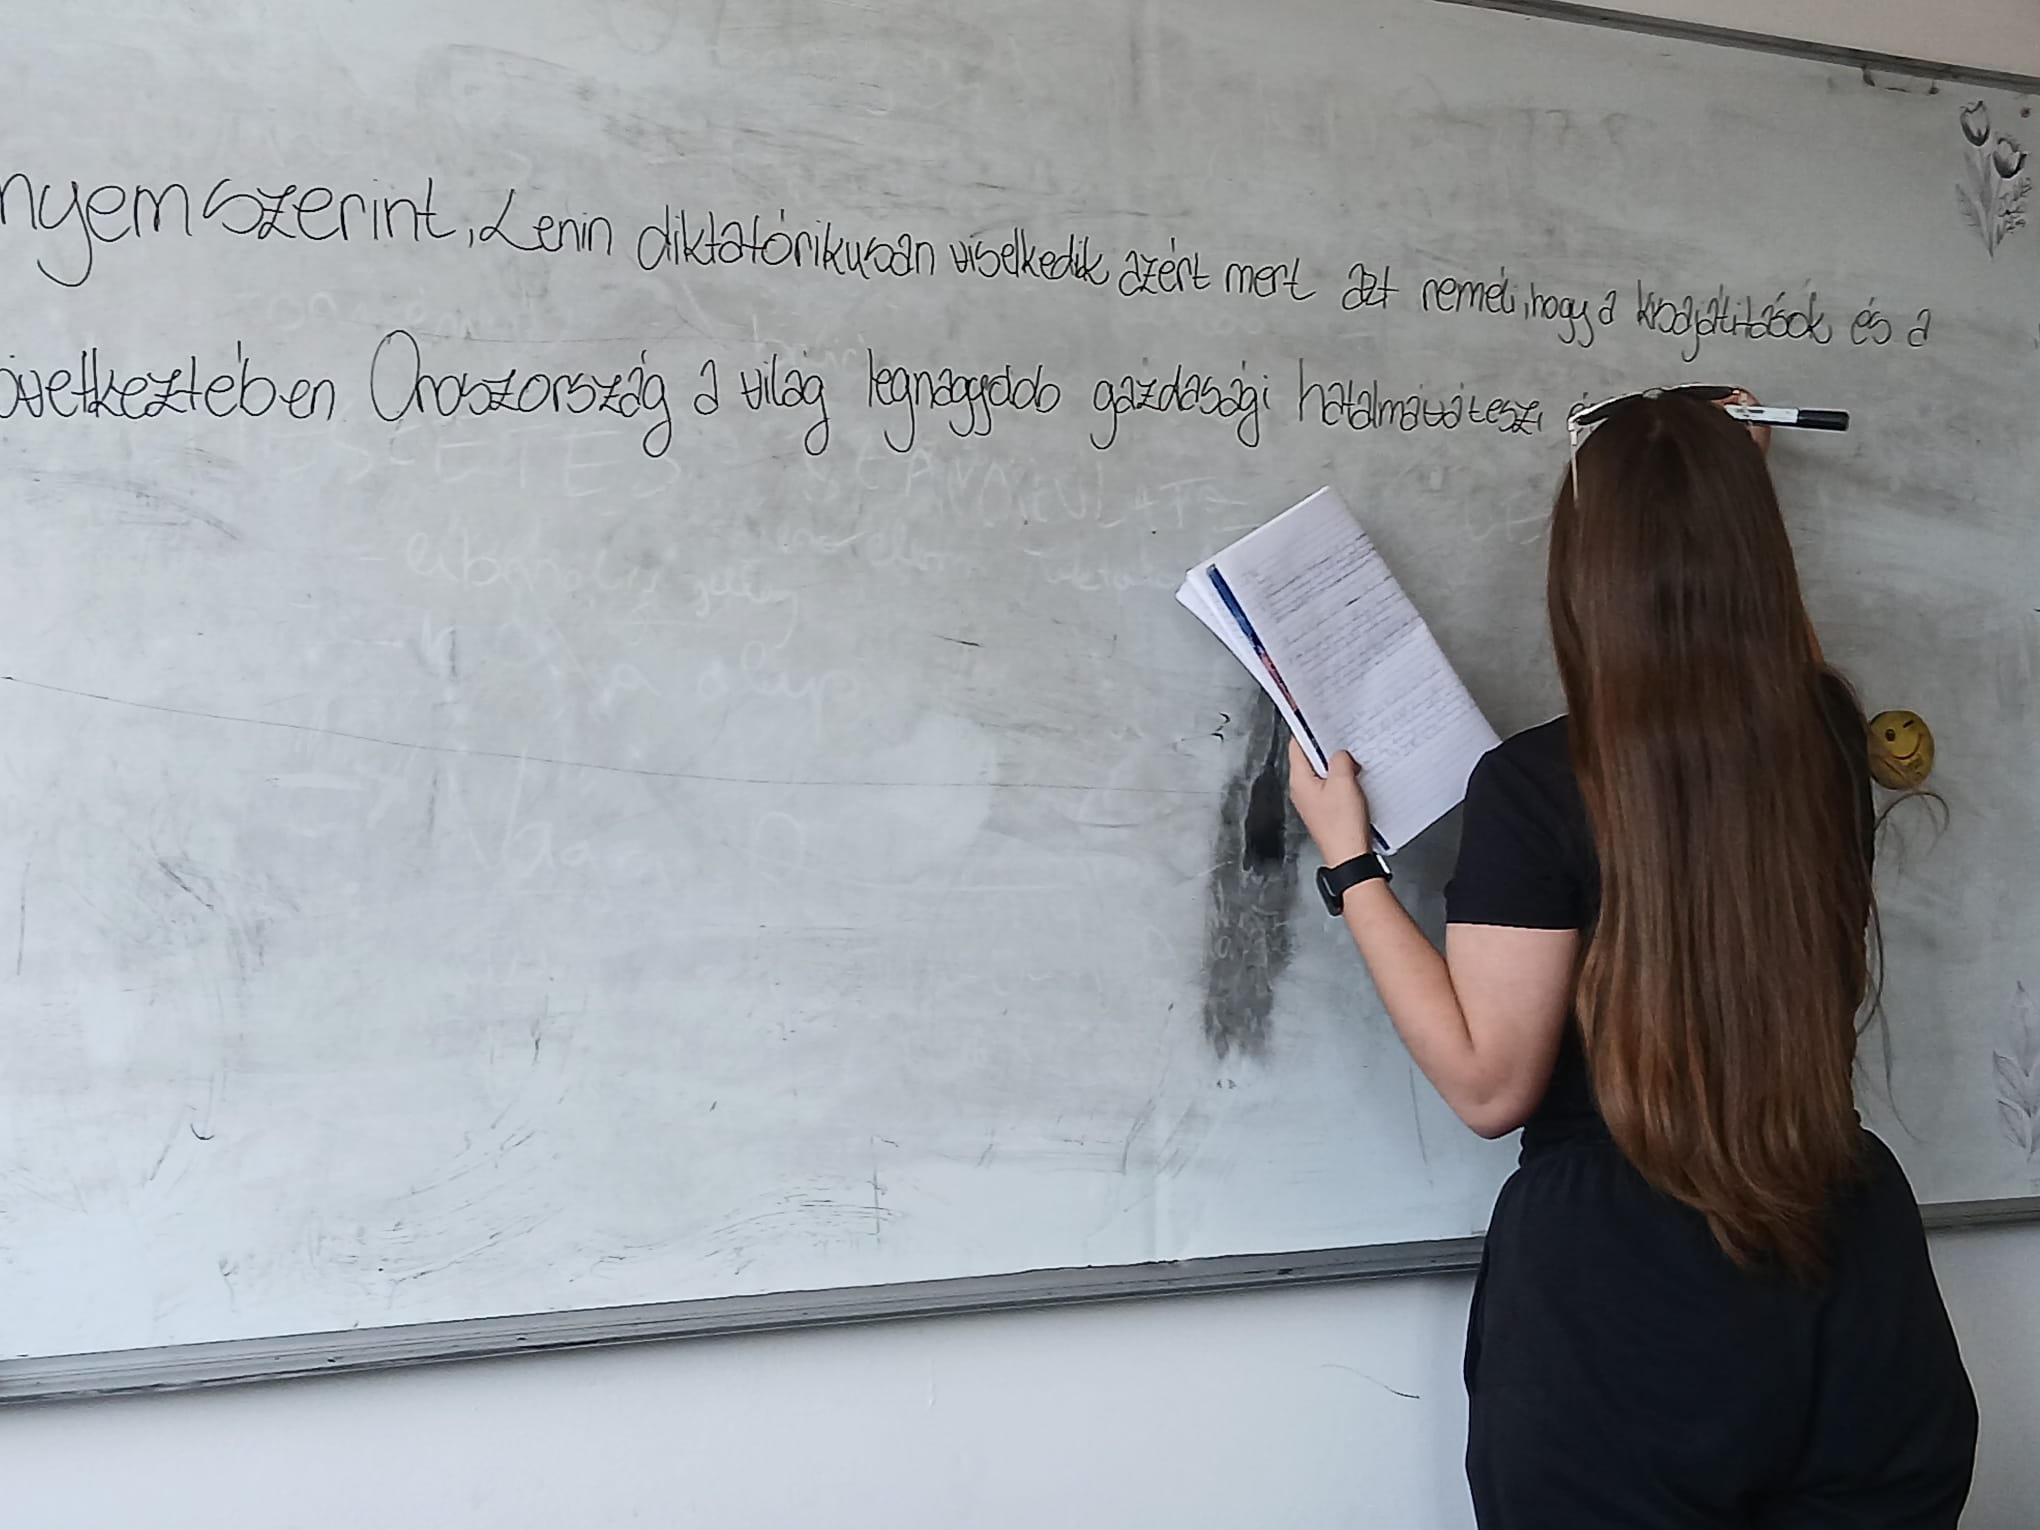 nyem szerint, Lenin diktatórikusan viselkedik azért mert azt reméli, hogy a kisajátítások és a
övetkeztében Oroszország a világ legnagyobb gazdasági hatalmává teszi